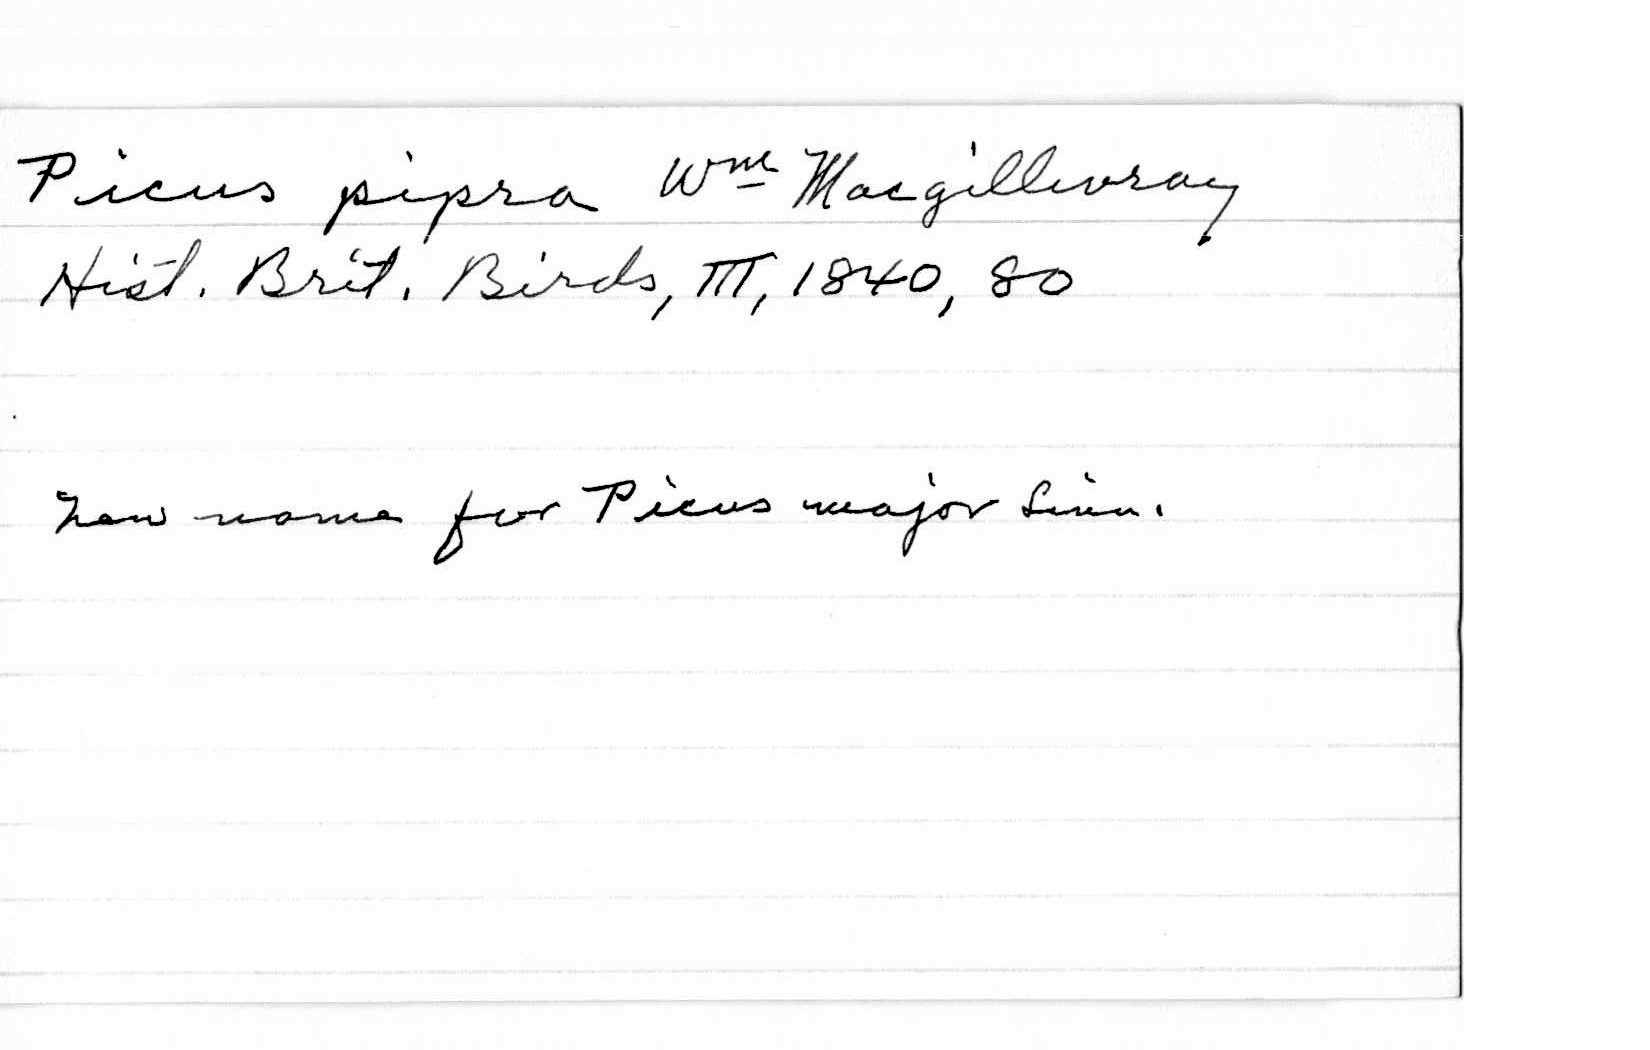 Picus pipra Wm Macgillivray
Hist. Brit. Birds, III, 1840, 80
New name for Picus major Linn.